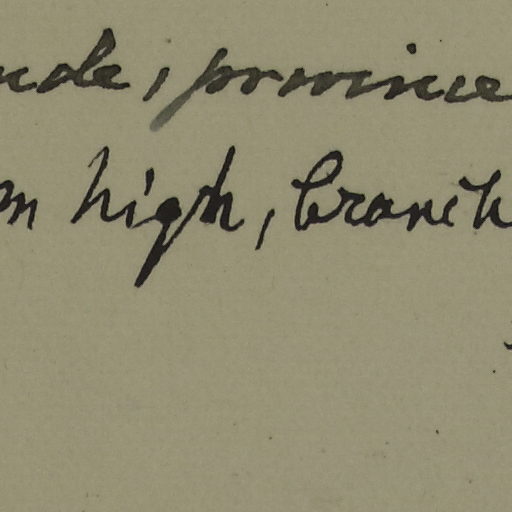 , province
m high, branch